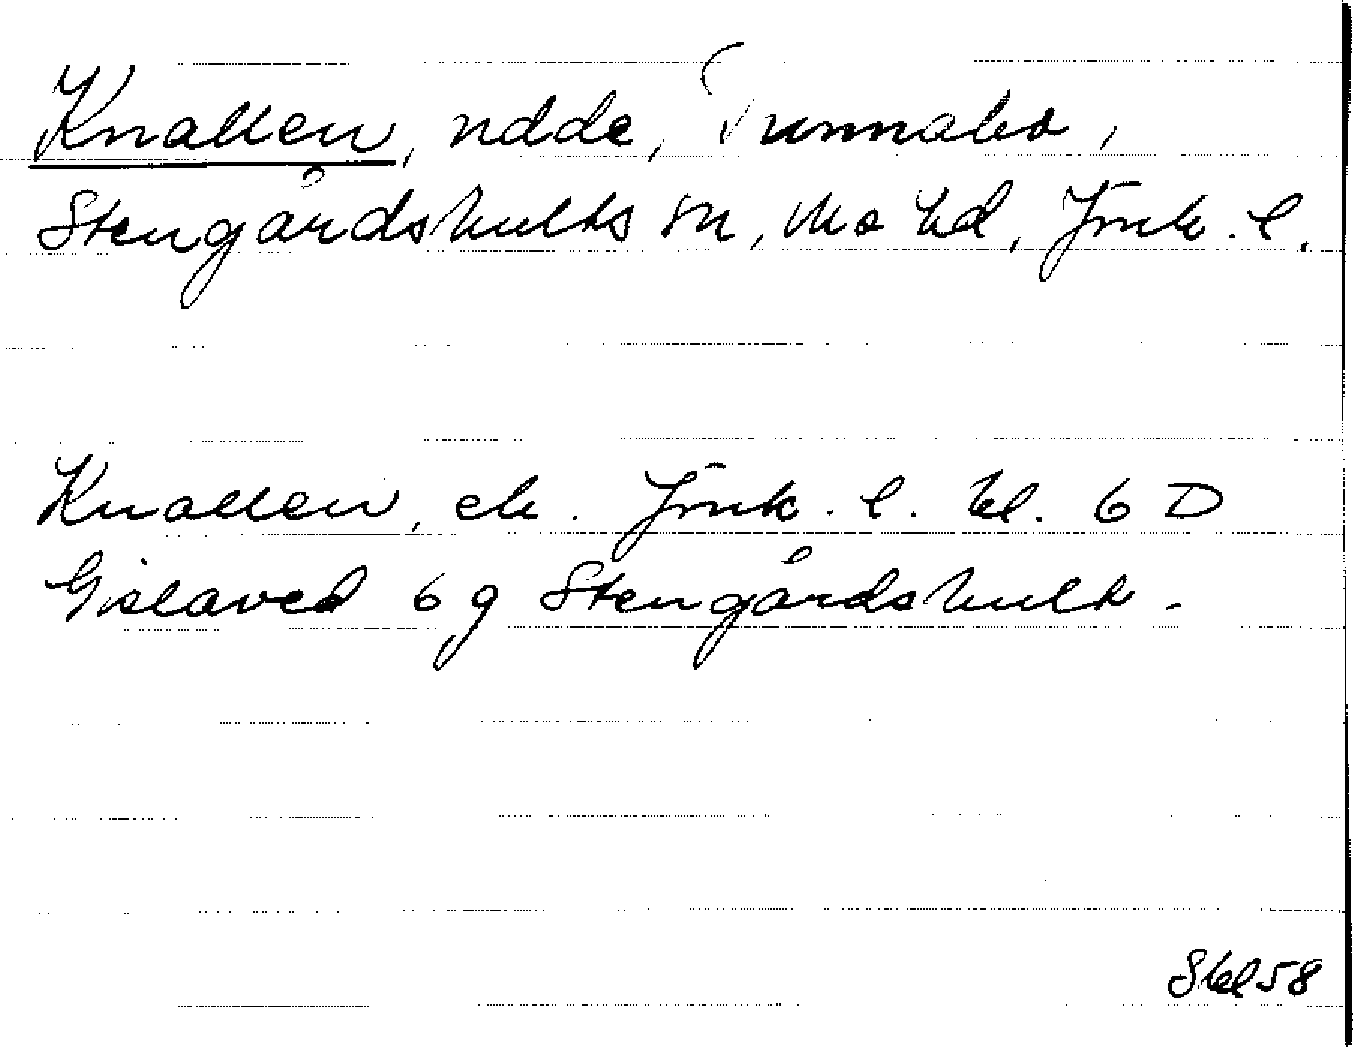 Knallen, ndde, Tunnabo,
Stengårdshults sn, Mo hd, Jönk. l.
Knallen, ek. Jönk. l. bl. 6 D
Gislaved 6 g Stengårdshult.
Skl 58